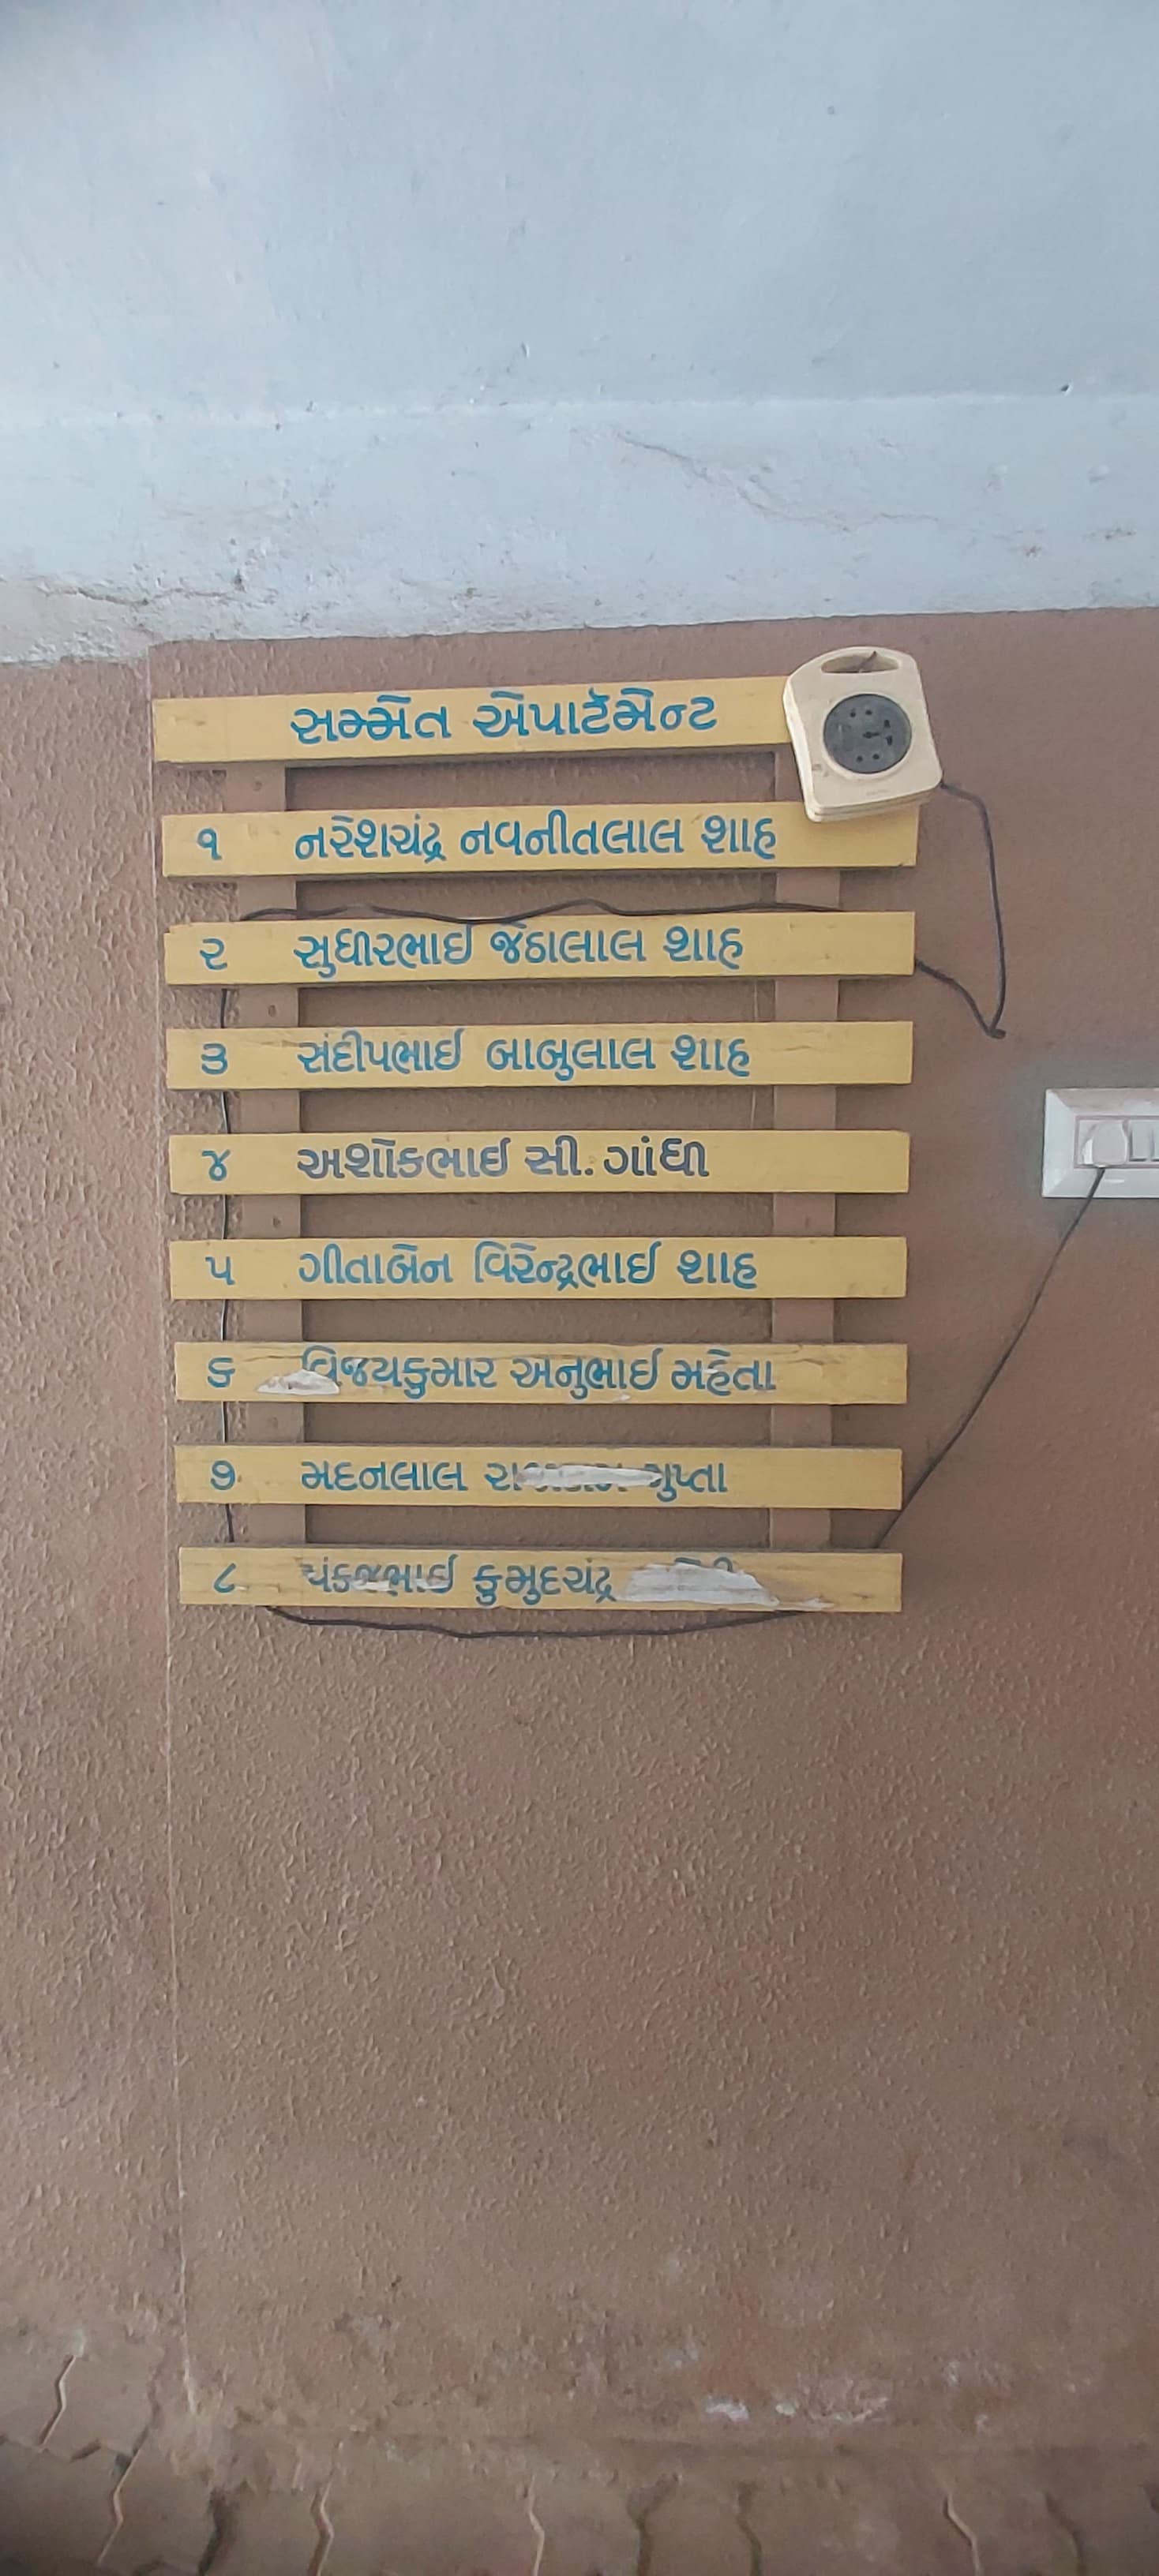 સમ્મેત એપાર્ટમેન્ટ
૧ નરેશચંદ્ર નવનીતલાલ શાહ
૨ સુધીરભાઈ જેઠાલાલ શાહ
૩ સંદીપભાઈ બાબુલાલ શાહ
૪ અશોકભાઈ સી. ગાંધી
૫ ગીતાબેન વિરેન્દ્રભાઈ શાહ
૬ વિજયકુમાર અનુભાઈ મહેતા
૭ મદનલાલ ગુપ્તા
૮ પંકજભાઈ કુમુદચંદ્ર